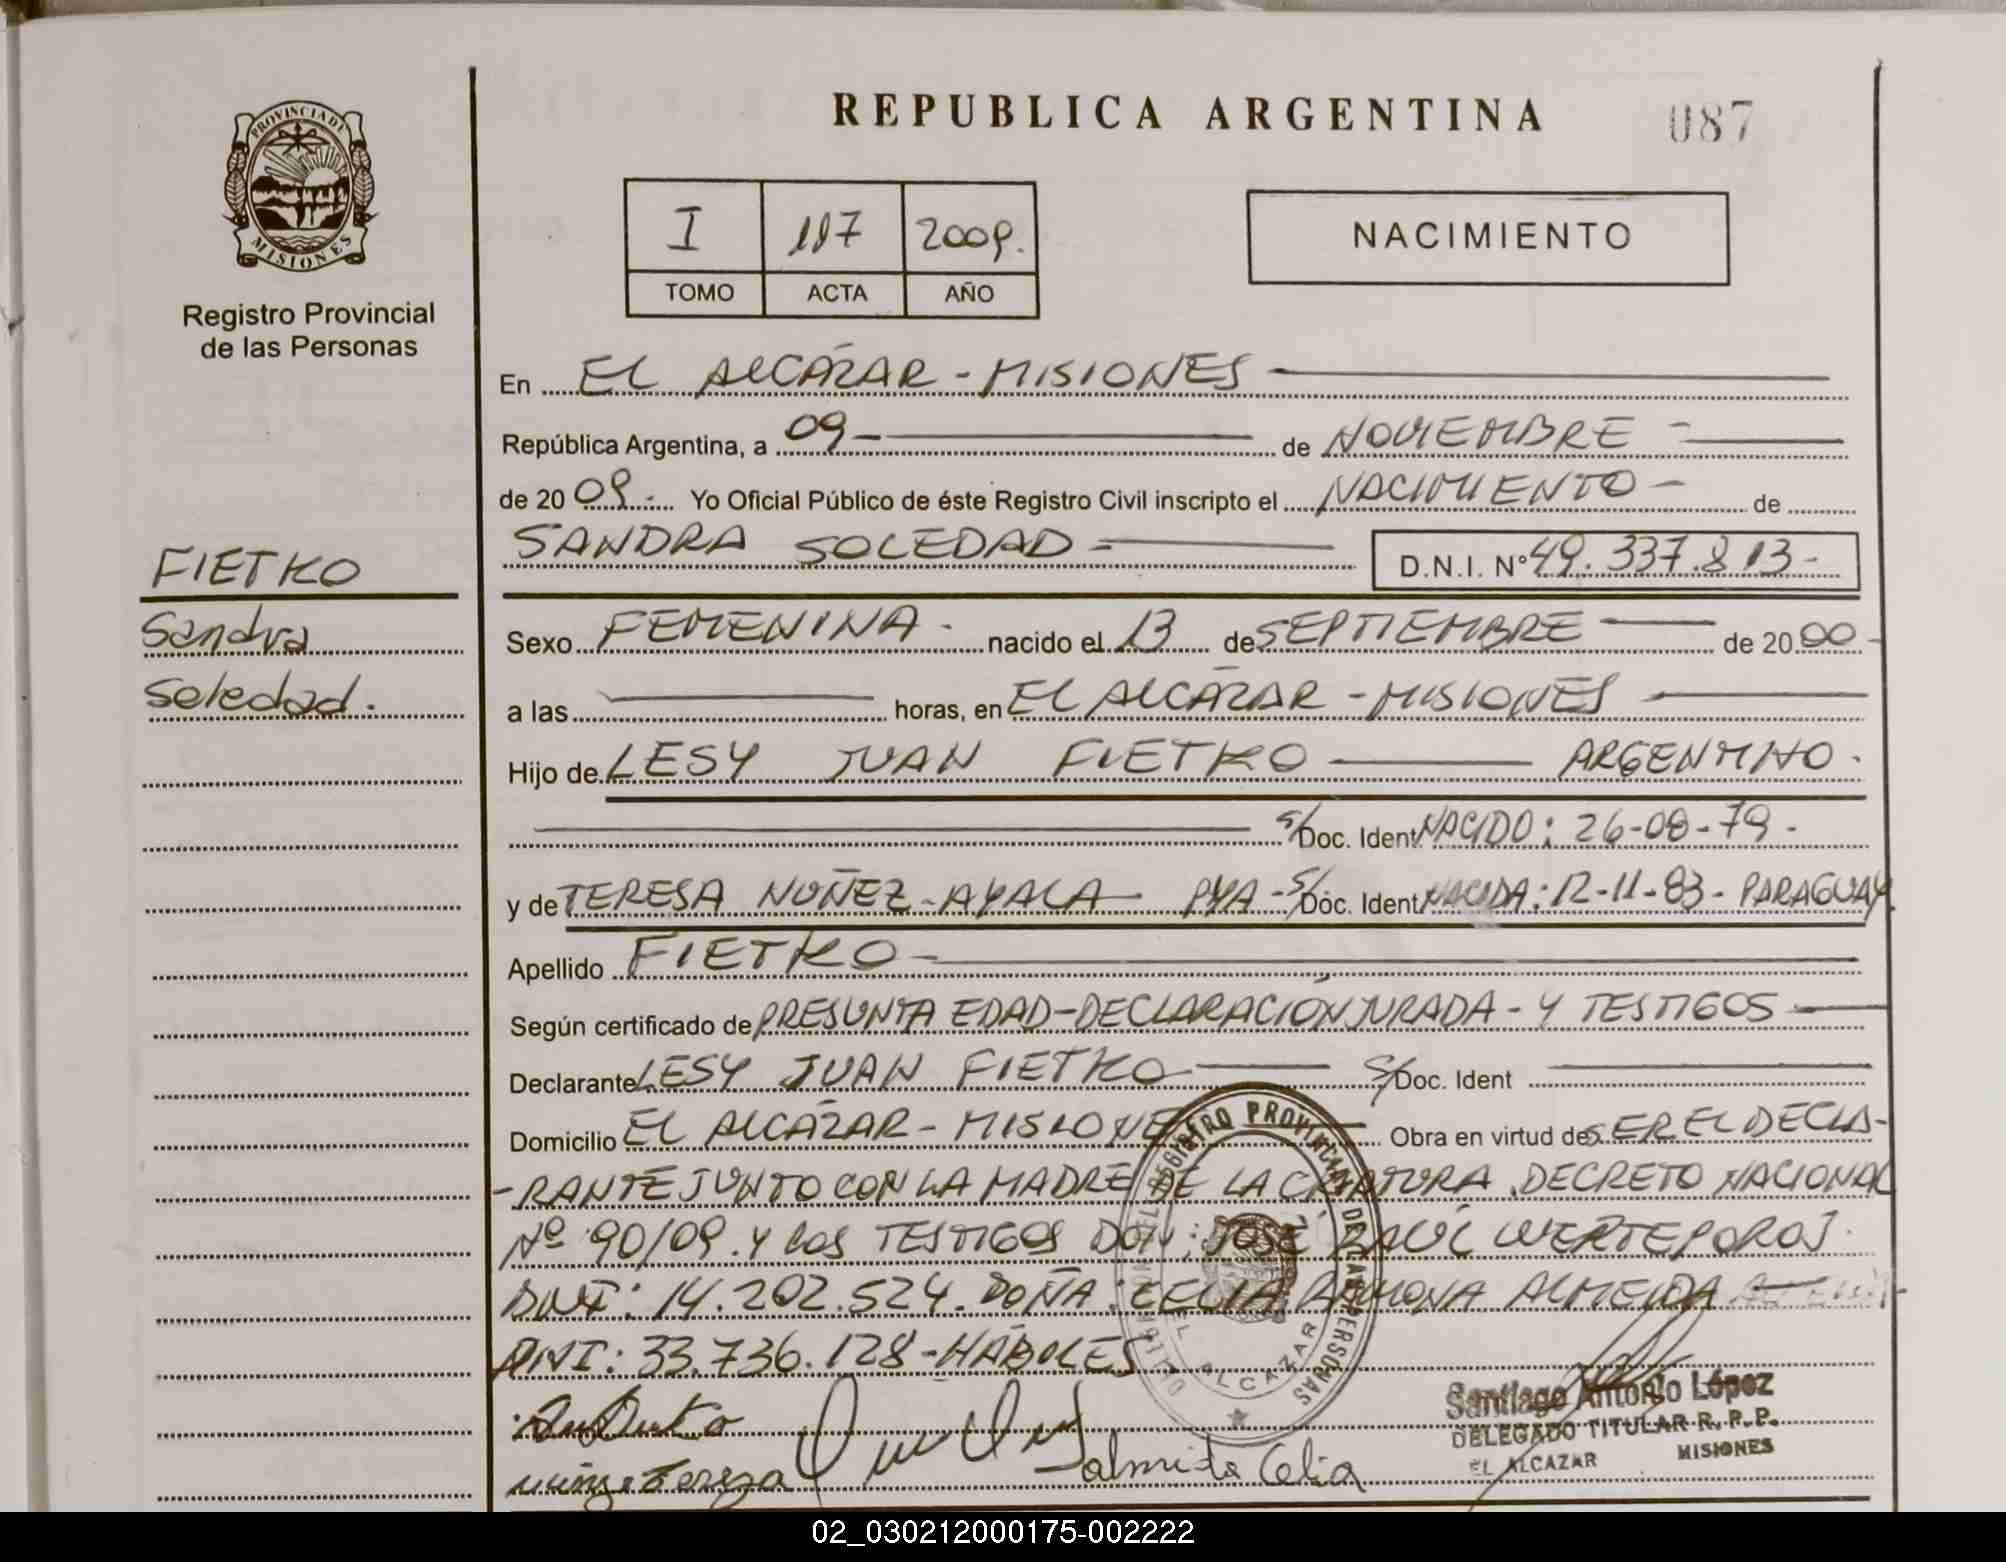 REPUBLICA ARGENTINA
087
PROVINCIA DE
MISIONES
Registro Provincial
de las Personas
I 117 2009.
TOMO ACTA AÑO
NACIMIENTO
En EL ALCÁZAR - MISIONES
República Argentina, a 09 de NOVIEMBRE -
de 20 09.- Yo Oficial Público de éste Registro Civil inscripto el NACIMIENTO - de
SANDRA SOLEDAD - D.N.I. Nº 49.337.813-
FIETKO
Sandra
Soledad.
Sexo FEMENINA - nacido el 13 de SEPTIEMBRE de 20 00 -
a las horas, en EL ALCÁZAR - MISIONES
Hijo de LESY JUAN FIETKO ARGENTINO.
S/Doc. Ident NACIDO: 26-08-79.-
y de TERESA NUÑEZ - AYALA PYA - S/Doc. Ident NACIDA: 12-11-83 - PARAGUAY.
Apellido FIETKO -
Según certificado de PRESUNTA EDAD-DECLARACIÓN JURADA - Y TESTIGOS
Declarante LESY JUAN FIETKO S/Doc. Ident
Domicilio EL ALCÁZAR - MISIONES Obra en virtud de SER EL DECLA-
-RANTE JUNTO CON LA MADRE DE LA CRIATURA. DECRETO NACIONAL
Nº 90/09. Y LOS TESTIGOS DON: JOSÉ RAÚL
DNI: 14.202.524. DOÑA: CELIA RAMONA ALMEIDA
DNI: 33.736.128 - HÁBILES
REGISTRO PROVINCIAL DE LAS PERSONAS
EL ALCAZAR
Santiago Antonio López
DELEGADO TITULAR R. P. P.
EL ALCAZAR MISIONES
Tereza
almeida Celia
02_030212000175-002222